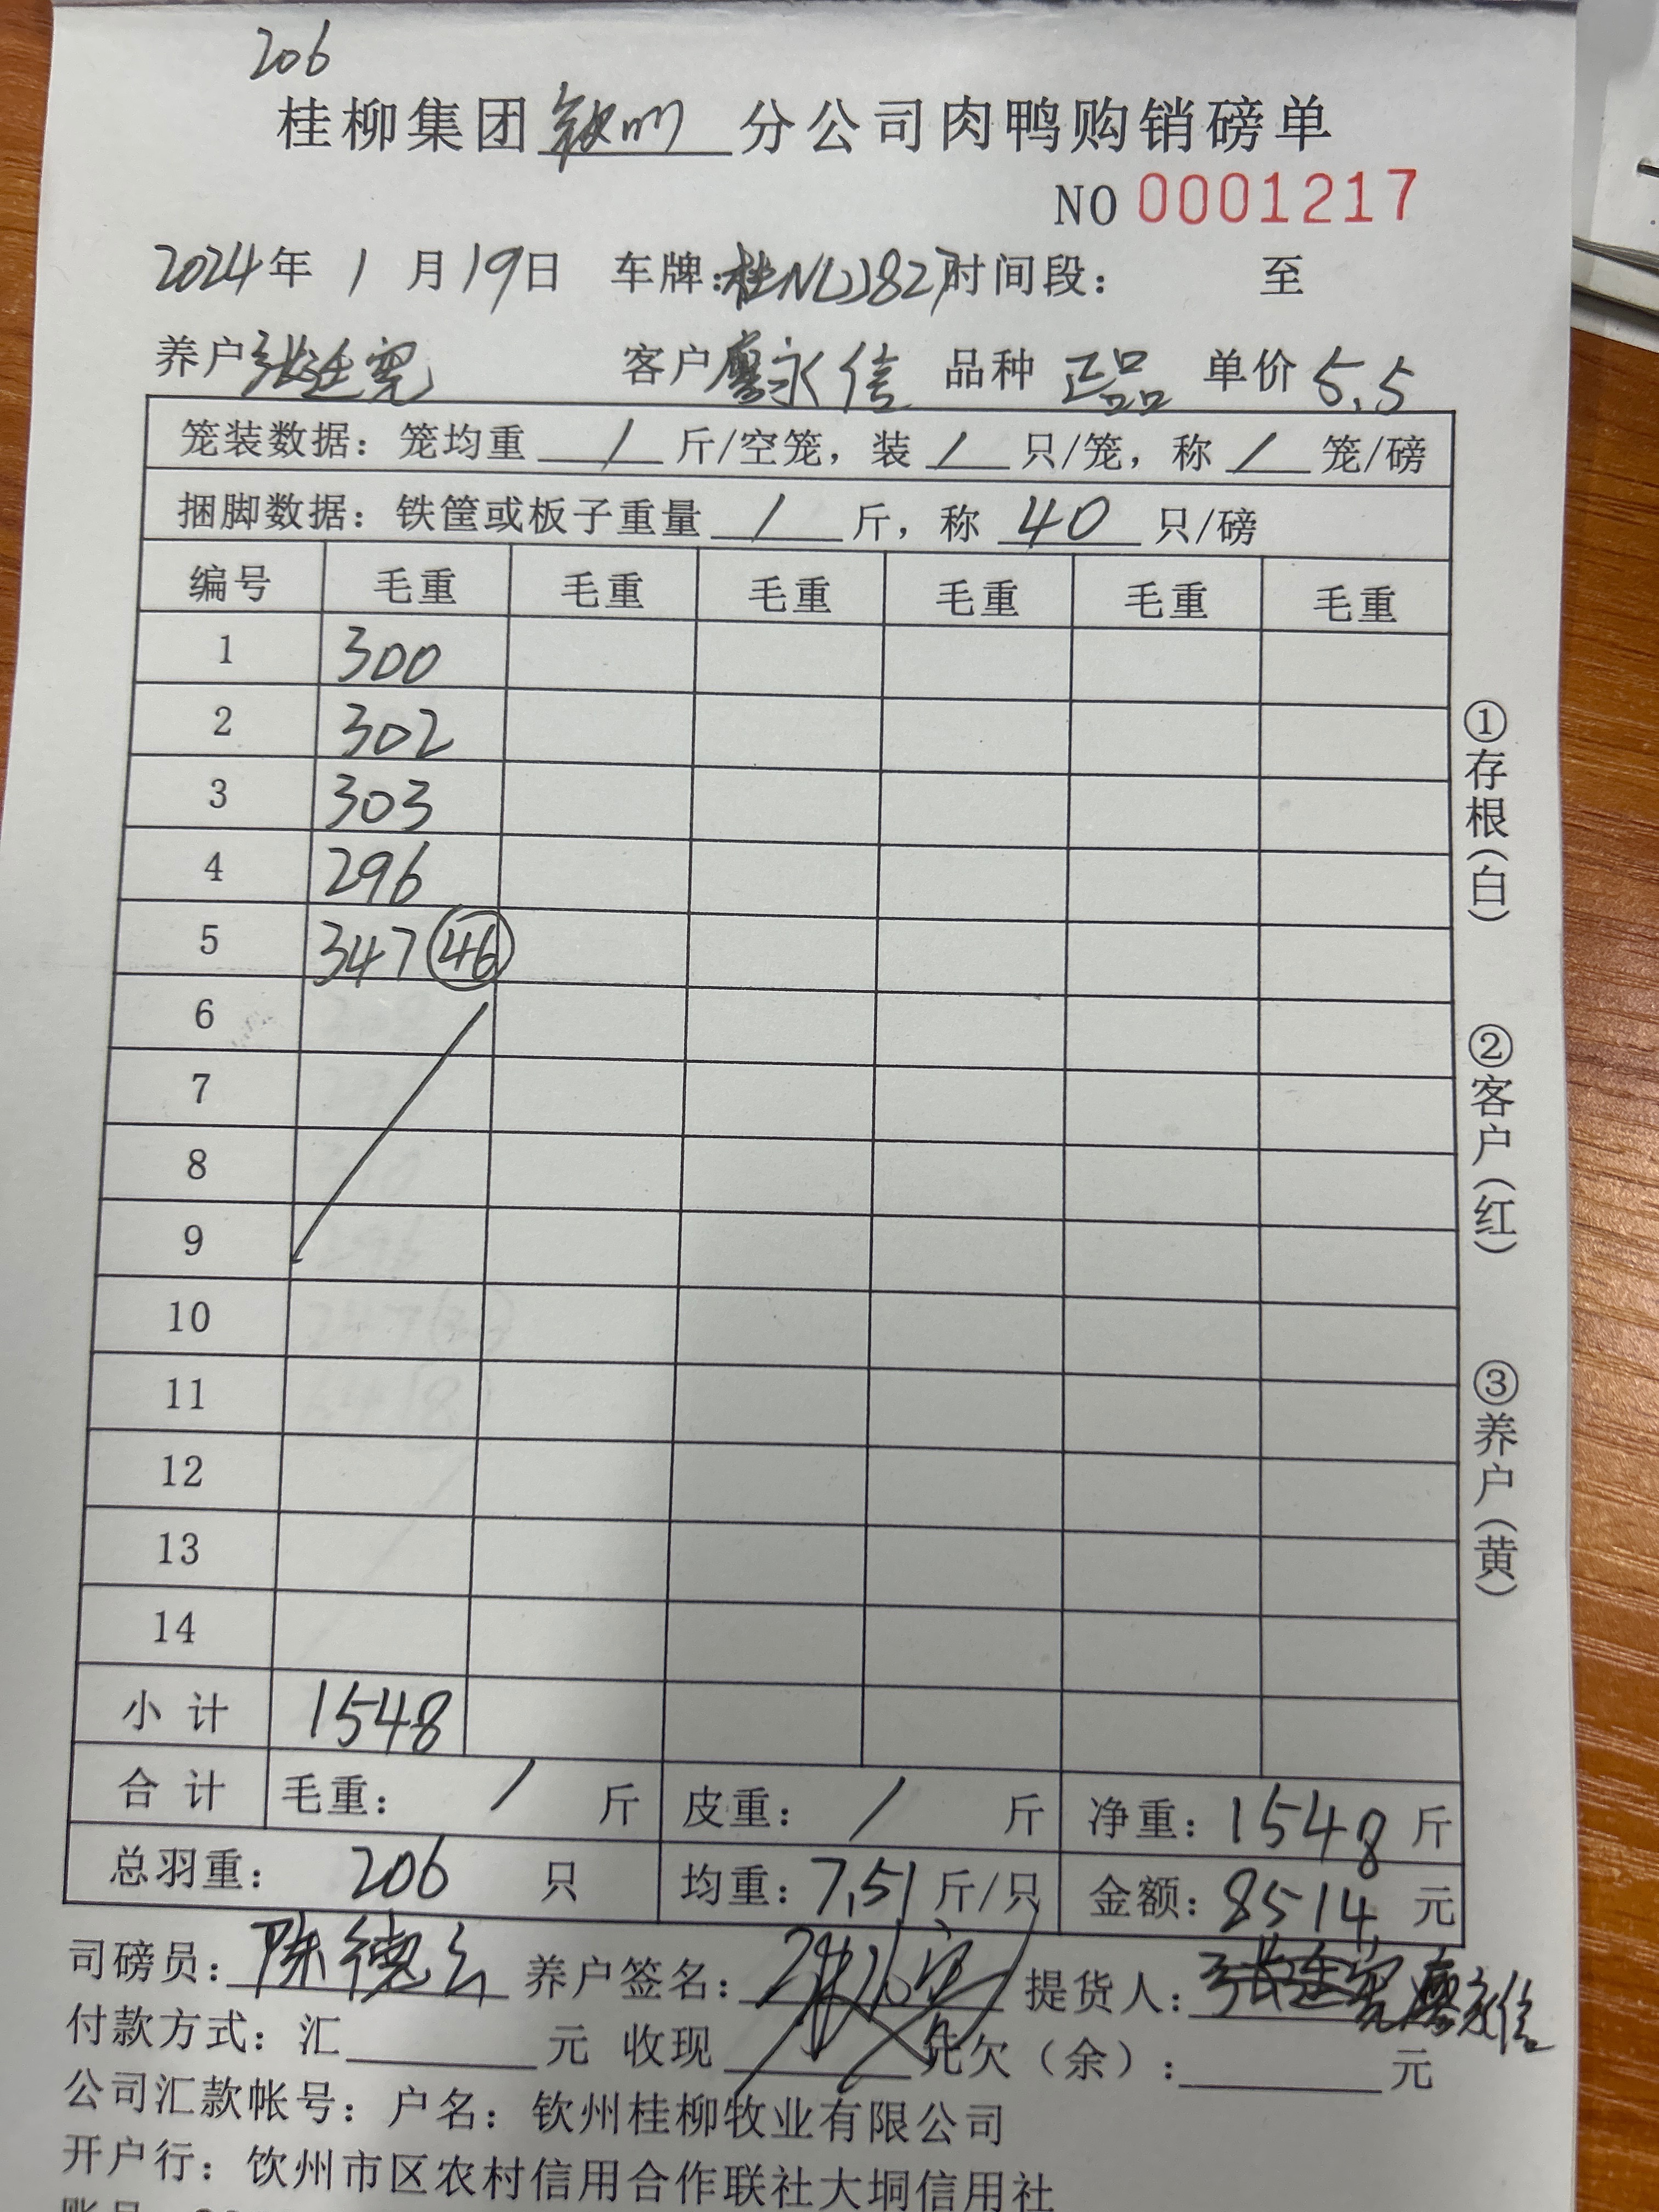 206
桂柳集团钦州分公司肉鸭购销磅单
NO 0001217
2024年 1 月 19日 车牌:桂N 827 时间段: 至
养户张廷宽 客户廖永信 品种 正品 单价 5.5
笼装数据：笼均重 / 斤/空笼，装 / 只/笼，称 / 笼/磅
捆脚数据：铁筐或板子重量 / 斤，称 40 只/磅
编号 毛重 毛重 毛重 毛重 毛重 毛重
1 300
2 302
3 303
4 296
5 347 46
6
7
8
9
10
11
12
13
14
小 计 1548
合 计 毛重： / 斤 皮重： / 斤 净重：1548 斤
总羽重： 206 只 均重：7.51 斤/只 金额：8514 元
司磅员：陈德 养户签名： 提货人：张廷宽廖永信
付款方式：汇 元 收现 元欠（余）： 元
公司汇款帐号：户名：钦州桂柳牧业有限公司
开户行：钦州市区农村信用合作联社大垌信用社
①存根（白）
②客户（红）
③养户（黄）